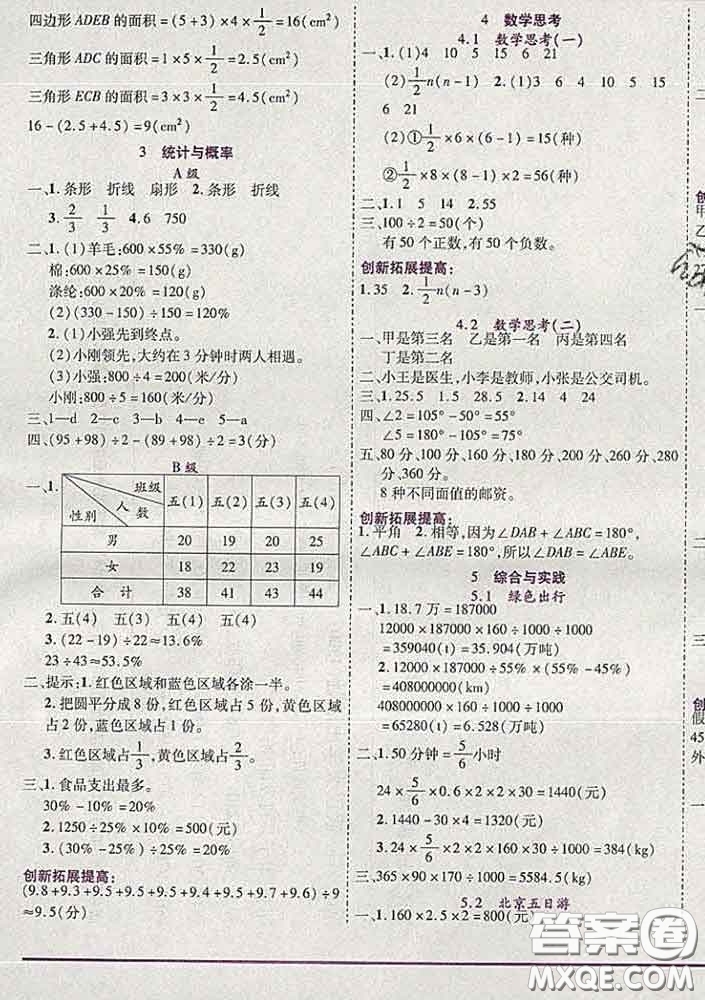 四边形ADEB的面积=(5+3)×4×1/2=16(cm²)
三角形ADC的面积=1×5×1/2=2.5(cm²)
三角形ECB的面积=3×3×1/2=4.5(cm²)
16-(2.5+4.5)=9(cm²)
3 统计与概率
A级
一、1.条形 折线 扇形 2.条形 折线
3.2/3 1/3 4.6 750
二、1.(1)羊毛:600×55%=330(g)
棉:600×25%=150(g)
涤纶:600×20%=120(g)
(2)(330-150)÷150=120%
2.(1)小强先到终点。
(2)小刚领先,大约在3分钟时两人相遇。
(3)小强:800÷4=200(米/分)
小刚:800÷5=160(米/分)
三、1—d 2—c 3—e 4—b 5—a
四、(95+98)÷2-(89+98)÷2=3(分)
B级
一、1.
班级 人数 性别 五(1) 五(2) 五(3) 五(4)
男 20 19 20 25
女 18 22 23 19
合计 38 41 43 44
2.五(4) 五(4) 五(4) 五(4)
3.(22-19)÷22≈13.6%
23÷43≈53.5%
二、提示:1.红色区域和蓝色区域各涂一半。
2.把圆平分成8份,红色区域占5份,黄色区域占2份,蓝色区域占1份。
3.红色区域占1/3,黄色区域占2/3。
三、1.食品支出最多。
30%-10%=20%
2.1250÷25%×10%=500(元)
3.(30%-25%)÷25%=20%
创新拓展提高:
(9.8+9.3+9.5+9.5+9.4+9.5+9.4+9.7+9.6)÷9
≈9.5(分)
4 数学思考
4.1 数学思考(一)
一、1.(1)4 10 5 15 6 21
(2)1/2n(n-1) 2.(1)3 6 4 10 5 15
6 21
(2)①1/2×6×(6-1)=15(种)
②1/2×8×(8-1)×2=56(种)
二、1.1 5 14 2.55
三、100÷2=50(个)
有50个正数,有50个负数。
创新拓展提高:
1.35 2.1/2n(n-3)
4.2 数学思考(二)
一、甲是第三名 乙是第一名 丙是第四名
丁是第二名
二、小王是医生,小李是教师,小张是公交司机。
三、1.25.5 1.5 28.5 2.14 4 24
四、∠2=105°-50°=55°
∠5=180°-105°=75°
五、80分、100分、160分、180分、200分、260分、280
分、360分。
8种不同面值的邮资。
创新拓展提高:
1.平角 2.相等,因为∠DAB+∠ABC=180°,
∠ABC+∠ABE=180°,所以∠DAB=∠ABE。
5 综合与实践
5.1 绿色出行
一、1.18.7万=187000
12000×187000×160÷1000÷1000
=359040(t)=35.904(万吨)
2.12000×187000÷55%×(55%-45%)
=408000000(km)
408000000×160÷1000÷1000
=65280(t)=6.528(万吨)
二、1.50分钟=5/6小时
24×5/6×0.6×2×2×30=1440(元)
2.1440-30×4=1320(元)
3.24×5/6×2×2×30×160÷1000=384(kg)
三、365×90×170÷1000=5584.5(kg)
5.2 北京五日游
一、1.160×2.5×2=800(元)
答案圈
MXQE.COM